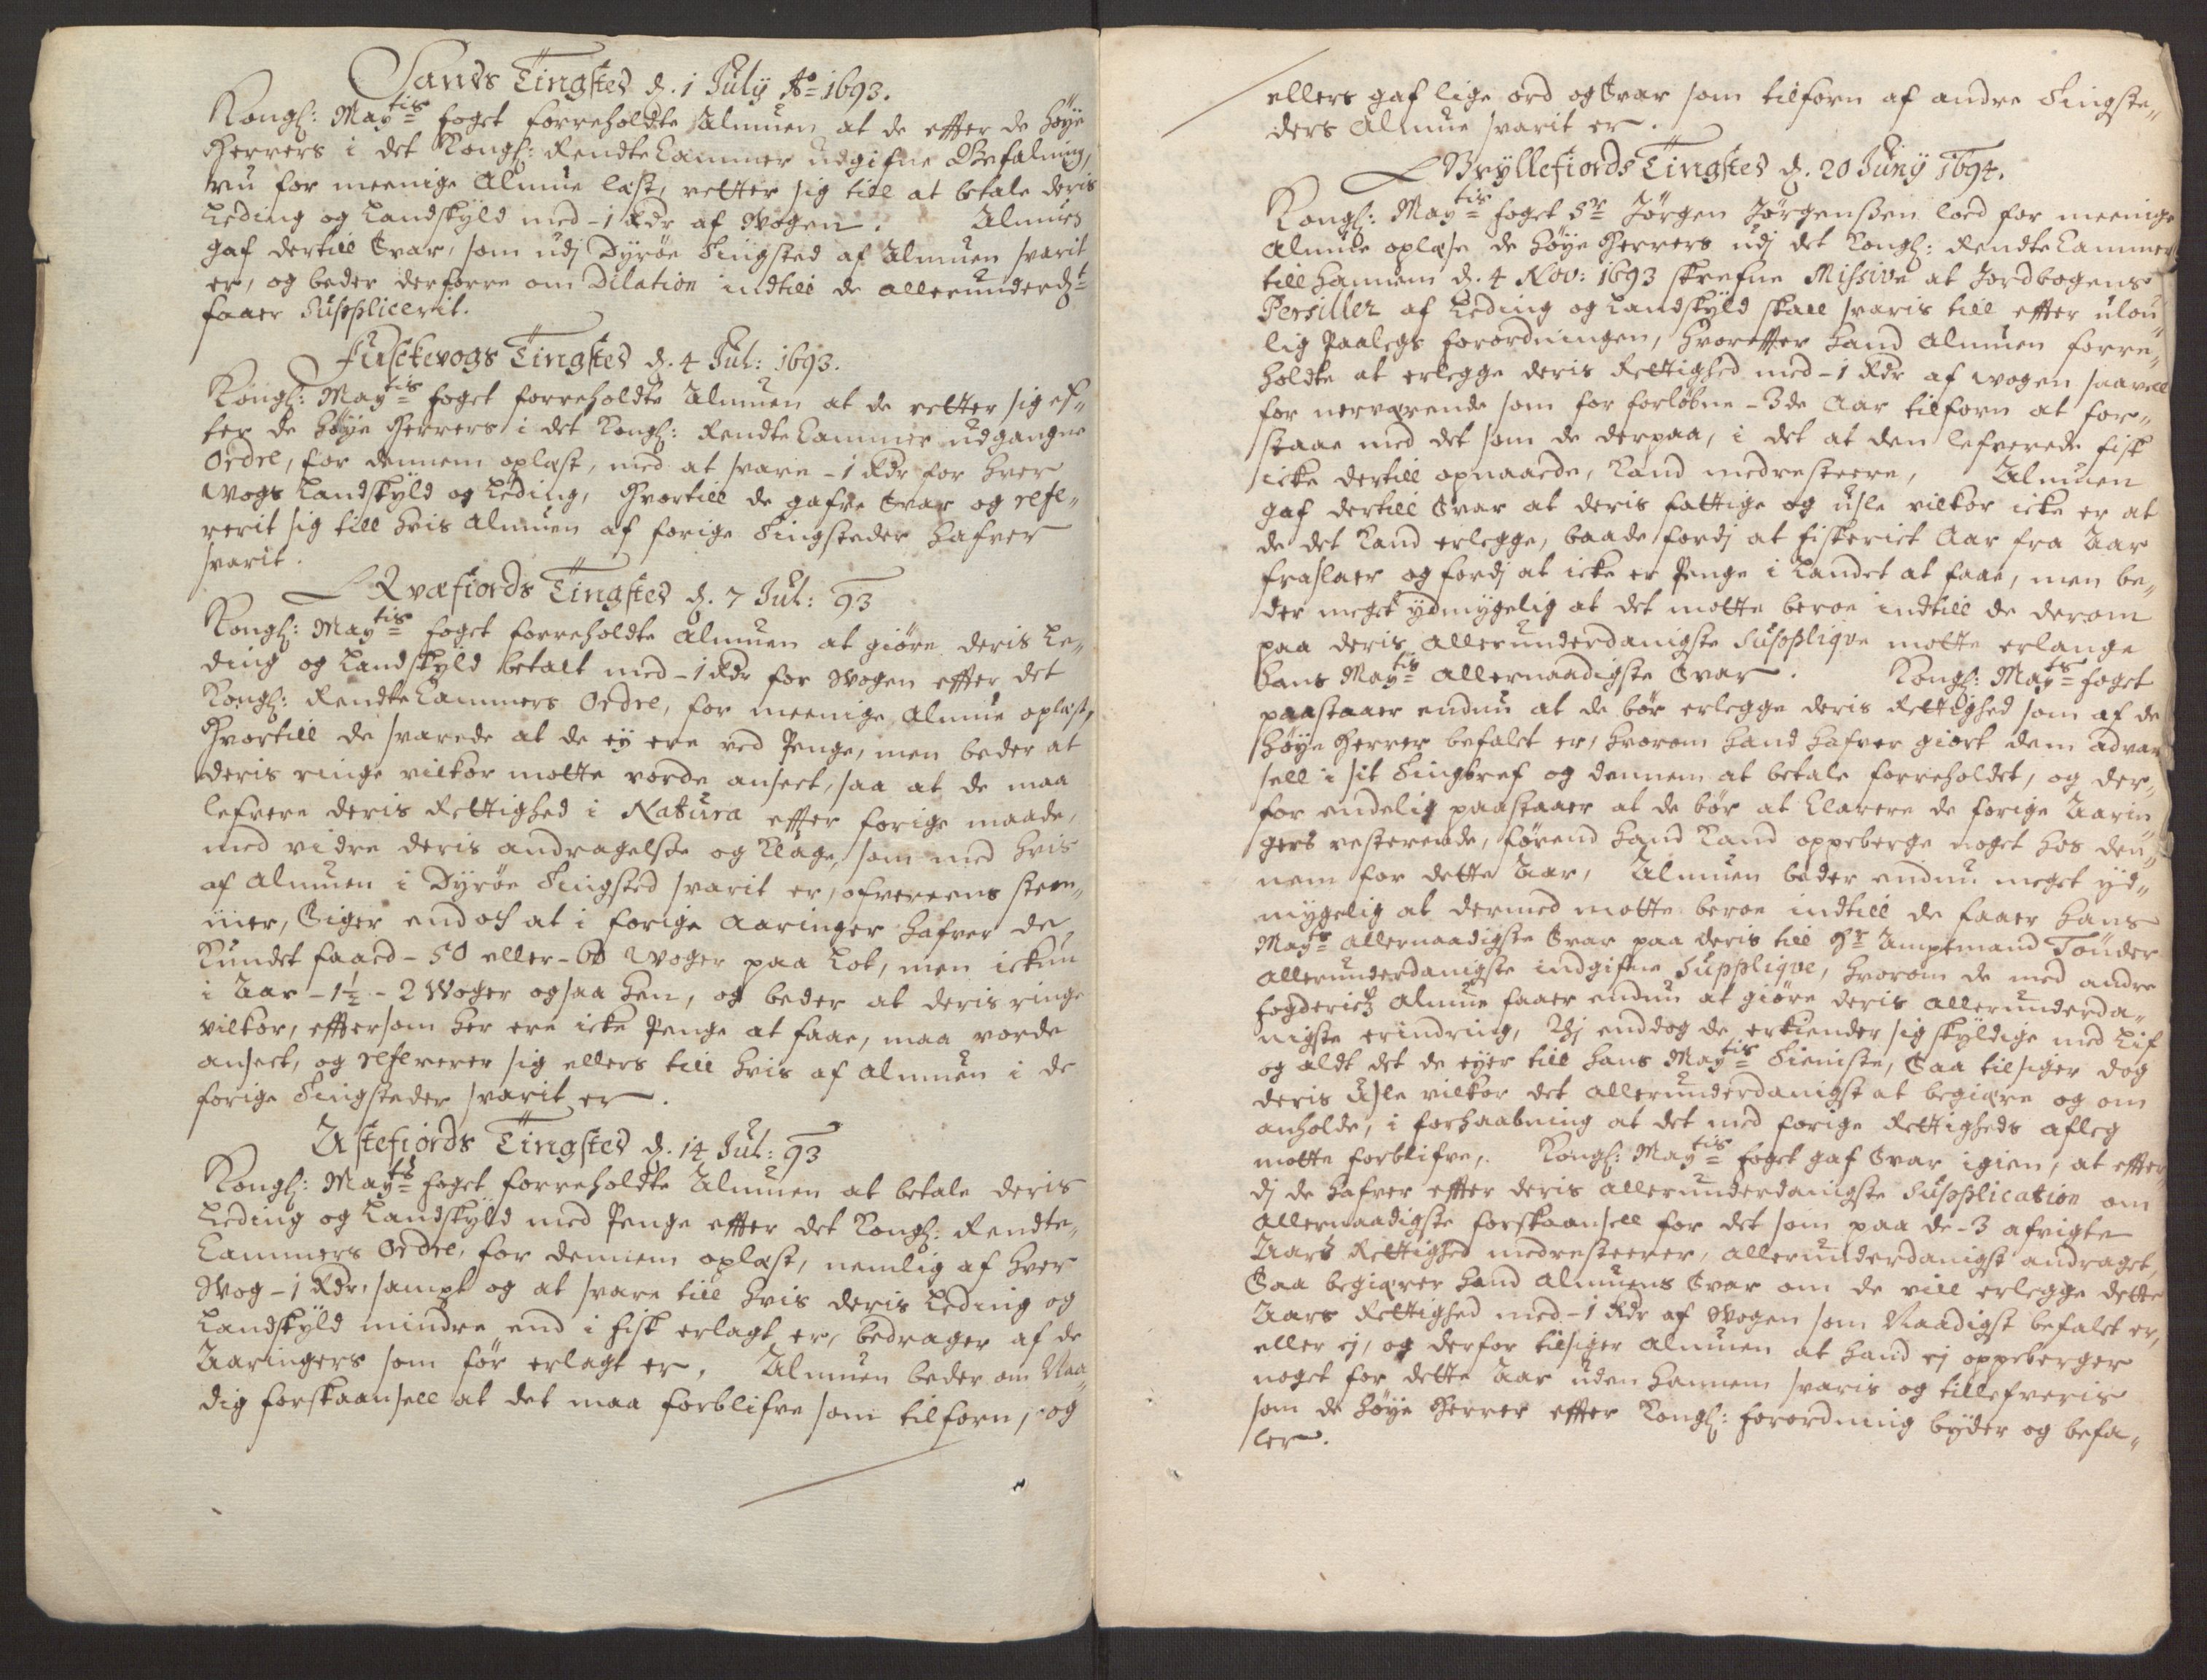 Sands Tingsted d. 1 July Ao 1693.
Kongl: Maytis foget forreholdte Almuen at de effter de høye
Herrers i det Kongl: RendteCammer udgifne Befalning,
nu for meenige Almue læst, retter sig till at betale deris
Leding og Landskyld med - 1 Rdr af Wogen. Almuen
gaf dertill Svar, som udj Dyrøe Tingsted af Almuen svarit
er, og beder derforre om Dilation indtill de allerunderd:t
faaer Supplicerit.
Fuskevogs Tingsted d. 4 Jul: 1693.
Kongl: Maytis foget forreholdte Almuen at de retter sig ef-
ter de høye Herrers i det Kongl: RendteCammer udgangne
Ordre, for dennem oplæst, med at svare - 1 Rdr for hver
Wogs Landskyld og Leding, hvortill de gafve Svar og refe-
rerit sig till hvis Almuen af forige Tingsteder hafver
svarit.
Qvæfiords Tingsted d. 7 Jul: 93
Kongl: Maytis foget forreholdte Almuen at giøre deris Le-
ding og Landskyld betalt med - 1 Rdr for Wogen effter det
Kongl: RendteCammers Ordre, for meenige Almue oplæst,
hvortill de svarede at de ey ere ved Penge, men beder at
deris ringe vilkor motte vorde anseet, saa at de maa
lefvere deris Rettighed i Natura effter forige maade,
med vidre deris andragelse og Klage, som med hvis
af Almuen i Dyrøe Tingsted svarit er, ofvereens stem-
mer, Siger end och at i forige Aaringer hafver de
Kundet faaed - 50 eller - 60 Woger paa Lot, men ickun
i Aar - 1½ - 2 Woger ogsaa hen, og beder at deris ringe
vilkor, effersom her ere icke Penge at faae, maa vorde
anseet, og refererer sig ellers till hvis af Almuen i de
forige Tingsteder svarit er.
Astefiords Tingsted d. 14 Jul: 93
Kongl: Mayts foget forreholdte Almuen at betale deris
Leding og Landskyld med Penge effter det Kongl: Rendte-
Cammers Ordre, for dennem oplæst, nemlig af hver
Wog - 1 Rdr, sampt og at svare till hvis deris Leding og
Landskyld mindre end i fisk erlagt er, bedrager af de
Aaringers som før erlagt er, Almuen beder om Naa-
dig forskaansell at det maa forblifve som tilforn, og
ellers gaf lige ord og Svar som tilforn af andre Tingste-
ders Almue svarit er.
Gryllefiords Tingsted d. 20 Juny 1694.
Kongl: Maytis foget Sr Jørgen Jørgensen loed for meenige
Almue oplæse de høye Herrers udj det Kongl: RendteCammer
till hannem d. 4 Nov: 1693 skrefne Missive at Jordbogens
Persiller af Leding og Landskyld skall svaris till effter
lig Paalegs forordningen, hvoreffter hand Almuen forre-
holdte at erlegge deris Rettighed med - 1 Rdr af wogen saavell
for nerværende som for forløbne - 3de Aar tilforn at for-
staae med det som de derpaa, i det at den lefverede fisk
icke dertill opnaaede, Kand medresteere, Almuen
gaf dertill Svar at deris fattige og usle vilkor icke er at
de det Kand erlegge, baade fordj at fiskeriet Aar fra Aar
fraslaer og fordj at icke er Penge i Landet at faae, men be-
der meget ydmygelig at det motte beroe indtill de derom
paa deris allerunderdanigste Supplique motte erlange
Hans Maytis allernaadigste Svar. Kongl: Mayts foget
paastaaer endnu at de bør erlegge deris Rettighed som af de
høye Herrer befalet er, hvorom hand hafver giort dem advar
sell i sit Tingbref og dennem at betale forreholdet, og der-
for endelig paastaaer at de bør at Clarere de forige Aarin
gers resterende, førend hand Kand oppeberge noget hos den-
nem for dette Aar, Almuen beder endnu meget yd-
mygelig at dermed motte beroe indtill de faaer Hans
Mayts allernaadigste Svar paa deris till Hr Amptmand Tønder
allerunderdanigste indgifne Supplique, hvorom de med andre
fogderietz Almue faaer endnu at giøre deris allerunderda-
nigste erindring, Thj enddog de erkiender sig skyldige med Lif
og aldt det de eyer till Hans Maytis Tieniste, Saa tilsiger dog
deris usle vilkor det allerunderdanigst at begiære og om
anholde, i forhaabning at det med forige Rettigheds afleg
motte forblifve,. Kongl: Maytis foget gaf Svar igien, at effter
dj de hafver effter deris allerunderdanigste Supplication om
allernaadigste forskaansell for det som paa de - 3 afvigte
Aars Rettighed medresteerer, allerunderdanigst andraget,
Saa begiærer hand Almuens Svar om de vill erlegge dette
Aars Rettighed med - 1 Rdr af Wogen som Naadigst befalet er,
eller ej, og derfor tilsiger Almuen at hand ej oppeberger
noget for dette Aar uden hannem svaris og tillefveris
som de høye Herrer effter Kongl: forordning byder og befa-
ler.